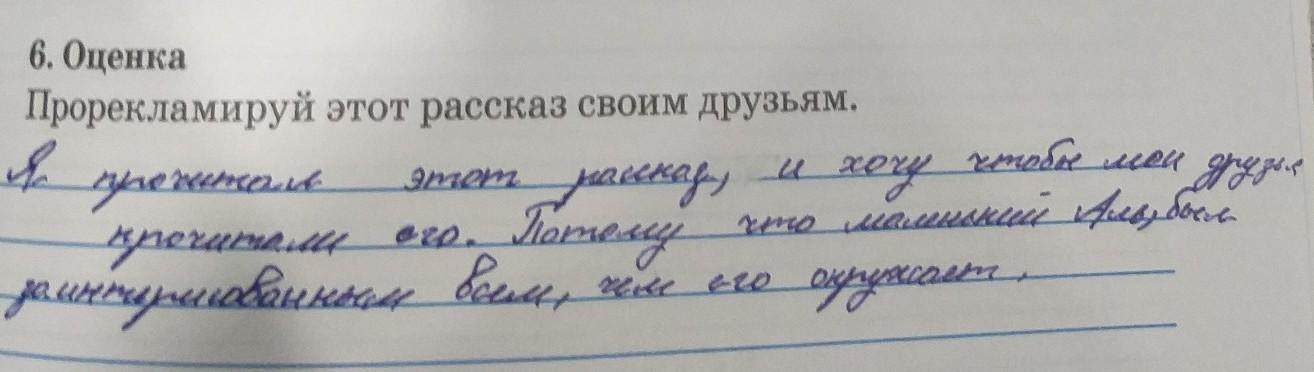 6. Оценка
Прорекламируй этот рассказ своим друзьям.
Я прочитал этот рассказ, и хочу чтобы мои друзья
прочитали его. Потому что маленький Аль, был
заинтересованным всем, чем его окружает.